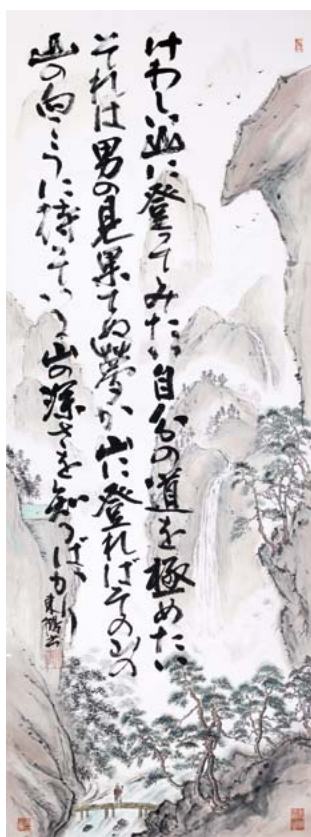 けわしい山に登ってみたい自分の道を極めたい
それは男の見果てぬ夢か山に登ればその山の
山の向こうに待っている山の深さを知るばかり